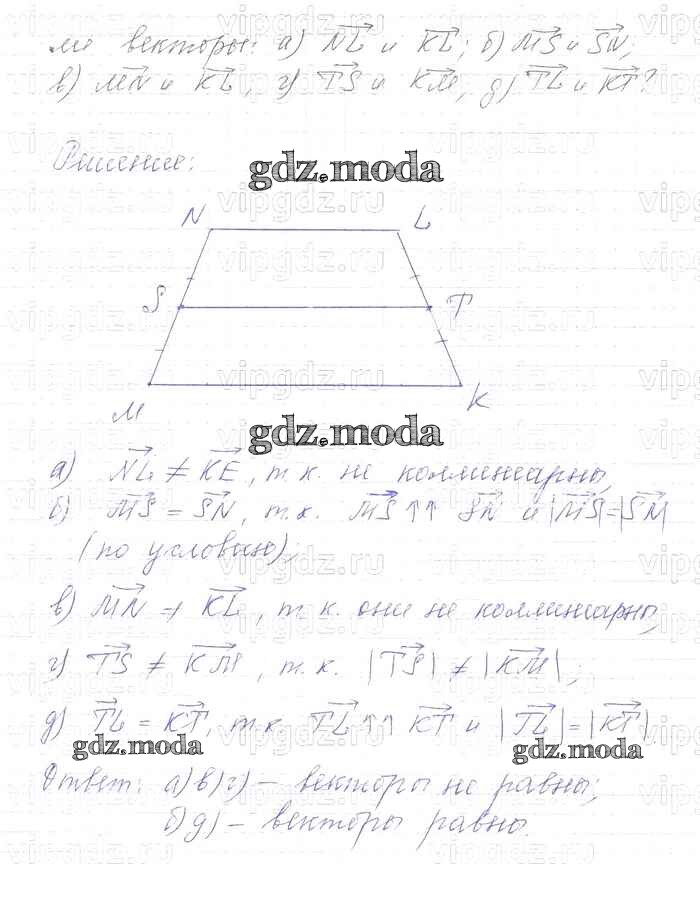 ли векторы: а) NL и KL; б) MS и SN;
в) MN и KL, г) TS и KM, д) TL и KT?
Решение:
gdz.moda
N L
S T
M K
gdz.moda
а) NL ≠ KE, т.к. не коллинеарны,
б) MS = SN, т.к. MS ↑↑ SN и |MS|=|SN|
(по условию);
в) MN ≠ KL, т.к. они не коллинеарны,
г) TS ≠ KM, т.к. |TS| ≠ |KM|;
д) TL = KT, т.к. TL ↑↑ KT и |TL|=|KT|.
gdz.moda gdz.moda
Ответ: а)в)г) – векторы не равны;
б)д) – векторы равны.
vipgdz.ru